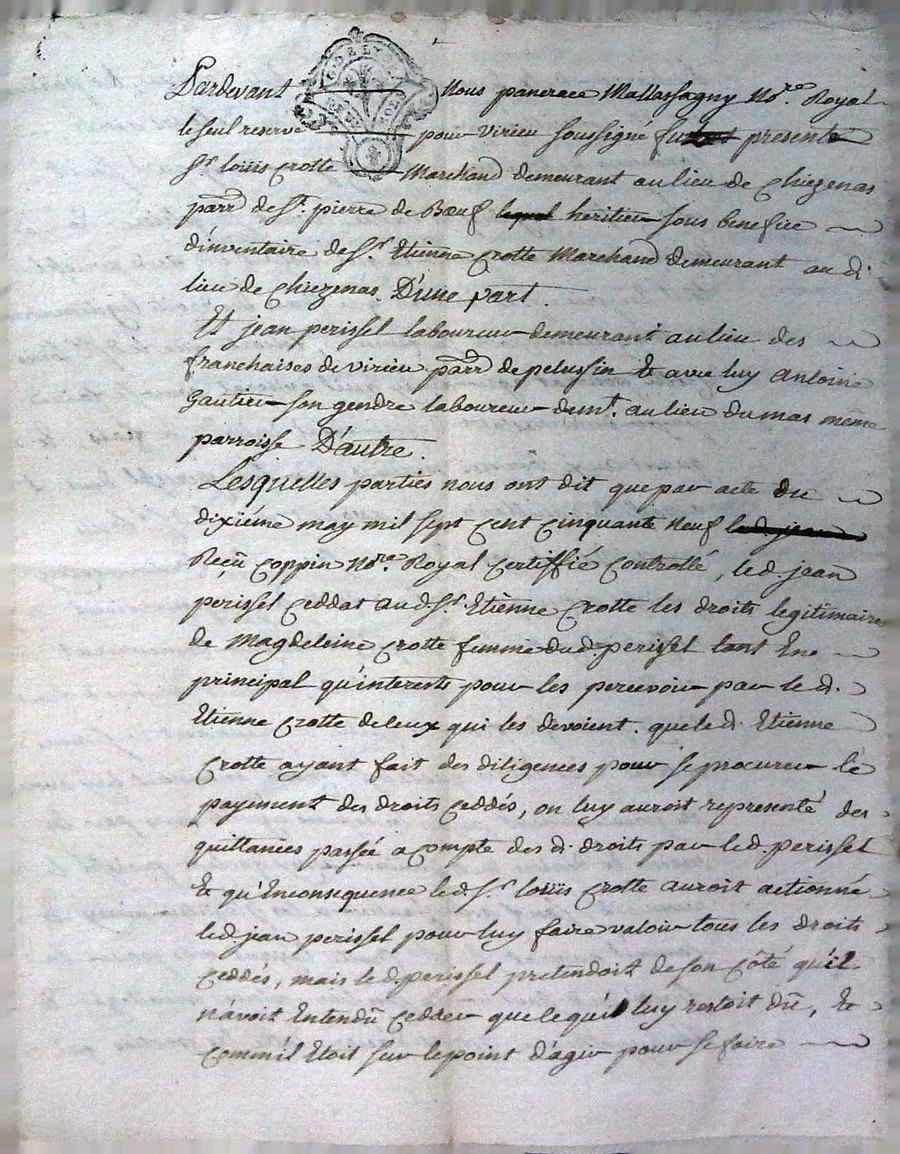 Pardevant Nous panerace Mallassagny No.re Royal
le seul reservé pour virieu soussigne fu present
Sr. loüis Crotte Marchand demeurant au lieu de Chezenas
parr. de St. pierre de Bœuf lequel heritier sous benefice
d'inventaire de Sr. Etienne Crotte Marchand demeurant au di.
lieu de Chezenas. D'une part.
Et jean perissel laboureur demeurant au lieu des
franchaises de virieu parr. de pelussin Et avec luy Antoine
Gautier son gendre laboureur demt. au lieu du mas même
parroisse D'autre.
Lesquelles parties nous ont dit que par acte du
dixiéme may mil sept cent cinquante neuf led. jean
Reçû Coppin No.re Royal Certiffié Controllé, led. jean
perissel Ceddat au d. Sr. Etienne Crotte les droits legitimaire
de Magdeleine Crotte femme dud. perissel tant En
principal qu'interests pour les percevoir par le d.
Etienne Crotte de ceux qui les devoient. que le d. Etienne
Crotte ayant fait des diligences pour se procurer le
payment des droits Ceddés, on luy auroit representé des
quittances passée a Compte des d. droits par led. perissel
Et qu'En consequence led. Sr. loüis Crotte auroit actionné
led. jean perissel pour luy faire valoir tous les droits
Ceddés, mais le d. perissel pretendoit de son Côté qu'il
n'avoit Entendu Cedder que le qu'il luy restoit dû, Et
Comm'il Etoit sur le point d'agir pour se faire